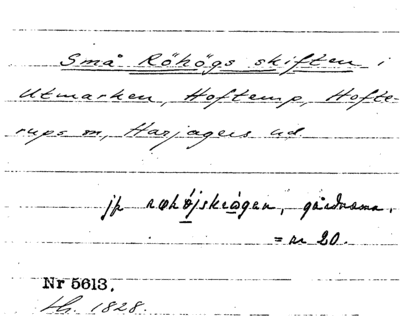 Små Röhögs skiften i
Utmarken, Hoftemp, Hofte-
rups sn, Harjagers hd.
jfr röhöjskrogen, gårdsnamn,
= nr 20.
Nr 5613.
Lh. 1828.